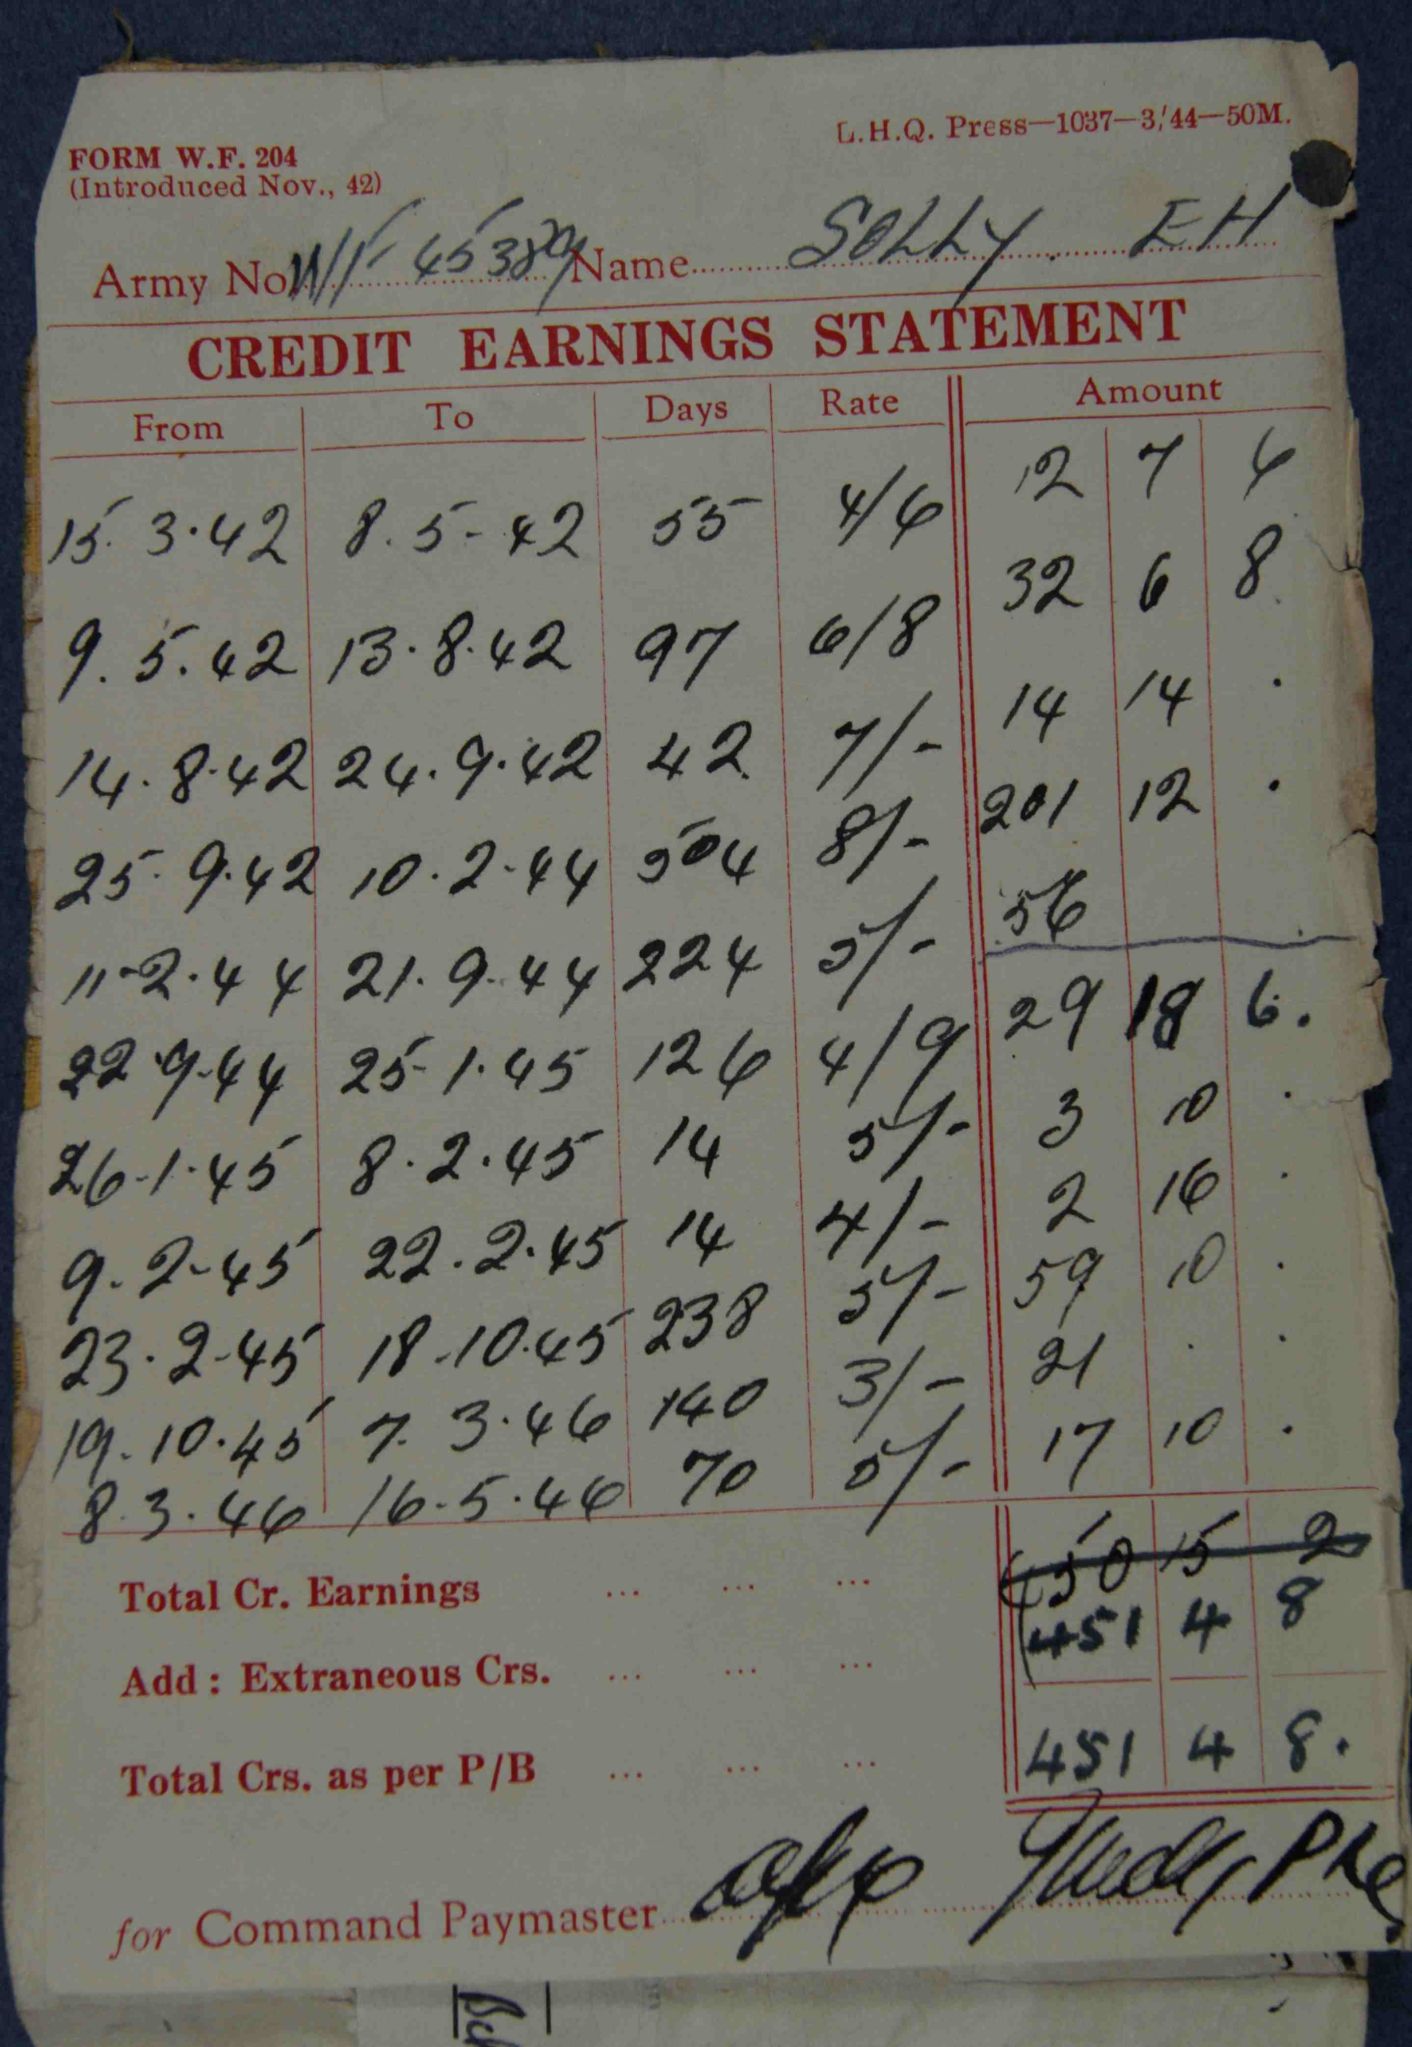 L.H.Q. Press—1037—3/44—50M.
FORM W.F. 204
(Introduced Nov., 42)
Army No. WF 45389 Name SOLLY. E H
CREDIT EARNINGS STATEMENT
From To Days Rate Amount
15.3.42 8.5-42 55 4/6 12 7 6
9.5.42 13.8.42 97 6/8 32 6 8
14.8.42 24.9.42 42 7/- 14 14 .
25.9.42 10.2.44 504 8/- 201 12 .
11-2.44 21.9.44 224 5/- 56 .
22.9.44 25-1.45 126 4/9 29 18 6.
26-1.45 8.2.45 14 5/- 3 10 .
9.2-45 22.2.45 14 4/- 2 16 .
23.2-45 18-10.45 238 5/- 59 10 .
19.10.45 7.3.46 140 3/- 21 . .
8.3.46 16-5.46 70 5/- 17 10 .
450 15 2
Total Cr. Earnings ... ... ... 451 4 8
Add: Extraneous Crs. ... ... ...
Total Crs. as per P/B ... ... ... 451 4 8.
for Command Paymaster